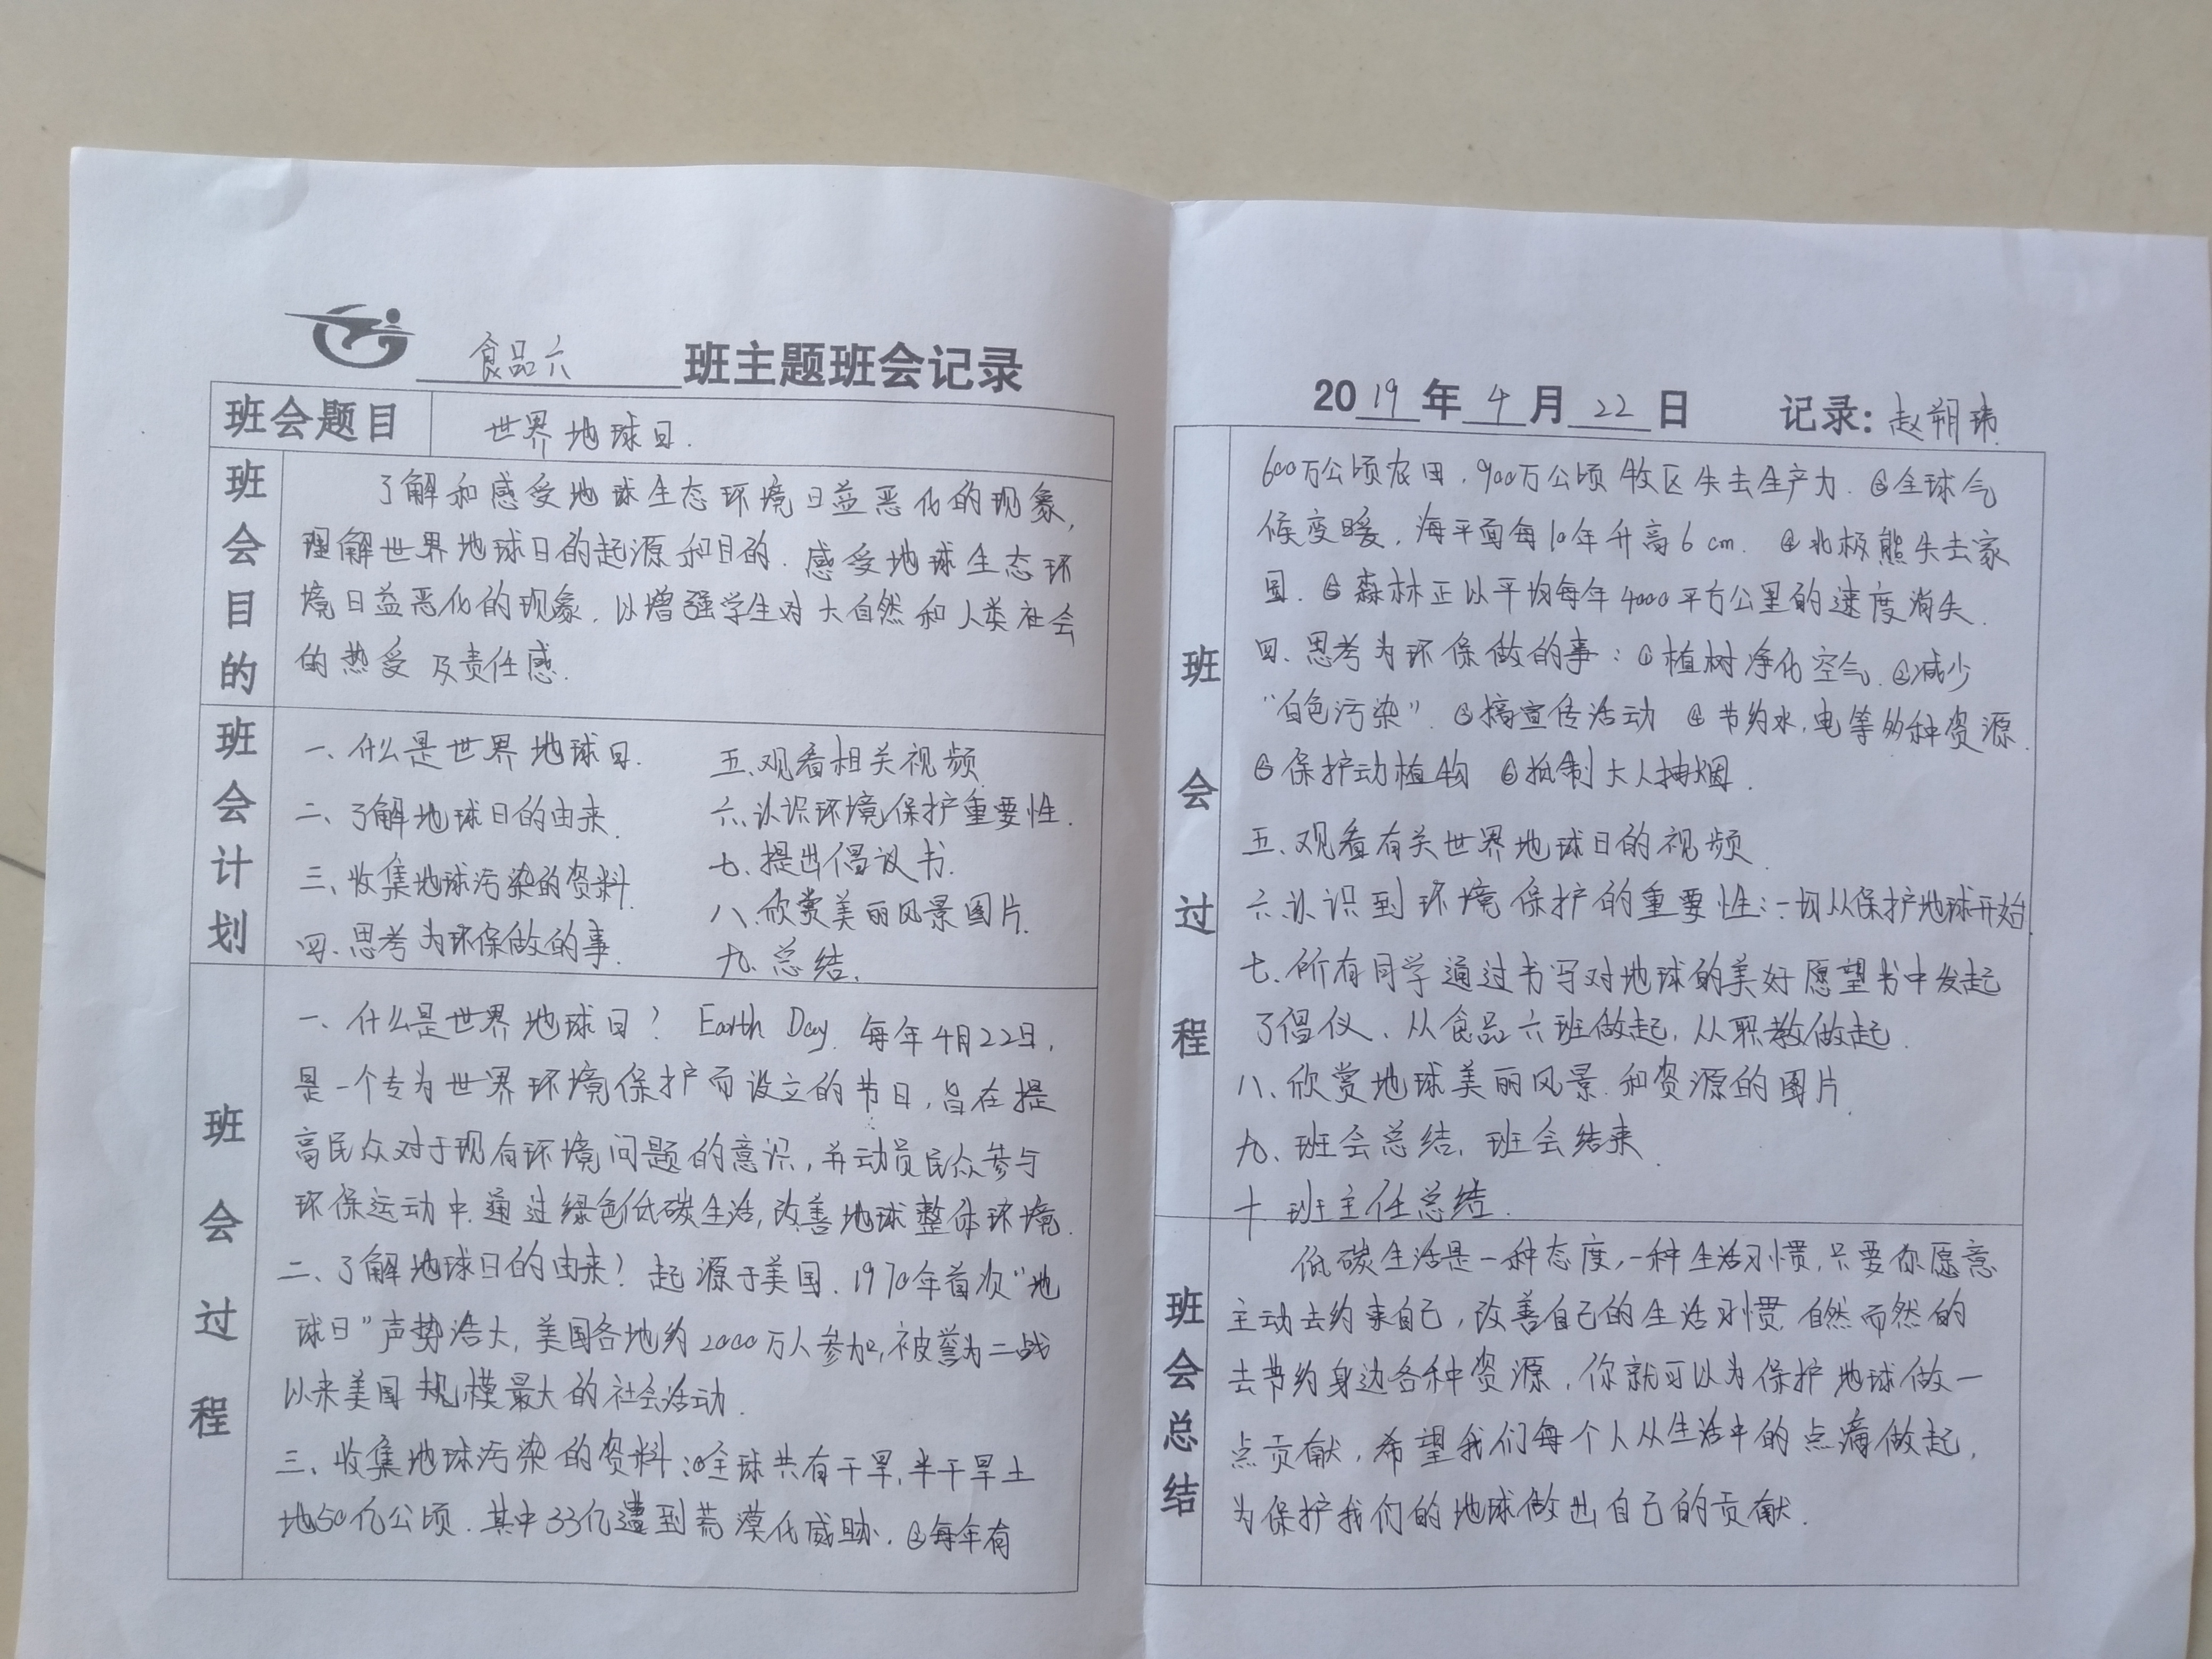 食品六 班主题班会记录
班会题目 世界地球日.
班会目的
了解和感受地球生态环境日益恶化的现象,
理解世界地球日的起源和目的.感受地球生态环
境日益恶化的现象.以增强学生对大自然和人类社会
的热爱及责任感.
班会计划
一、什么是世界地球日.
二、了解地球日的由来.
三、收集地球污染的资料.
四、思考为环保做的事.
五、观看相关视频
六、认识环境保护重要性.
七、提出倡议书.
八、欣赏美丽风景图片.
九、总结.
班会过程
一、什么是世界地球日? Earth Day. 每年4月22日,
是一个专为世界环境保护而设立的节日,旨在提
高民众对于现有环境问题的意识,并动员民众参与
环保运动中.通过绿色低碳生活,改善地球整体环境.
二、了解地球日的由来? 起源于美国.1970年首次“地
球日”声势浩大,美国各地约2000万人参加,被誉为二战
以来美国规模最大的社会活动.
三、收集地球污染的资料:①全球共有干旱,半干旱土
地50亿公顷.其中33亿遭到荒漠化威胁.②每年有
2019年4月22日 记录:赵朔玮
班会过程
600万公顷农田,900万公顷牧区失去生产力.③全球气
候变暖,海平面每10年升高6cm. ④北极熊失去家
园.⑤森林正以平均每年4000平方公里的速度消失.
四、思考为环保做的事:①植树净化空气.②减少
“白色污染”.③搞宣传活动 ④节约水,电等多种资源.
⑤保护动植物 ⑥抵制大人抽烟.
五、观看有关世界地球日的视频.
六、认识到环境保护的重要性:一切从保护地球开始.
七、所有同学通过书写对地球的美好愿望书中发起
了倡仪、从食品六班做起,从职教做起.
八、欣赏地球美丽风景.和资源的图片.
九、班会总结,班会结束.
十.班主任总结.
班会总结
低碳生活是一种态度,一种生活习惯,只要你愿意
主动去约束自己,改善自己的生活习惯.自然而然的
去节约身边各种资源,你就可以为保护地球做一
点贡献,希望我们每个人从生活中的点滴做起,
为保护我们的地球做出自己的贡献.